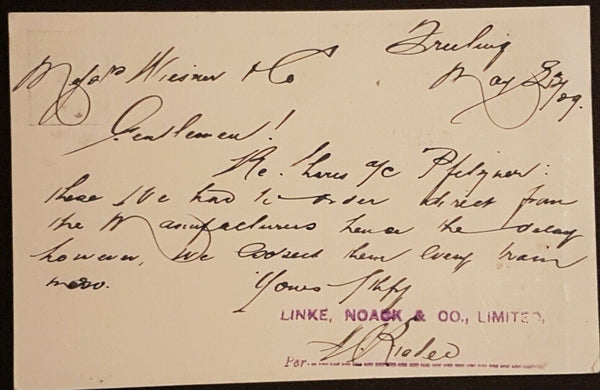 Freeling
May 23/09.
Messrs Wiesner & Co
Gentlemen!
Re. hames a/c Pfitzner:
these we had to order direct from
the Manufacturers hence the delay
however, we expect them every train
now.
Yours
LINKE, NOACK & CO., LIMITED,
Per